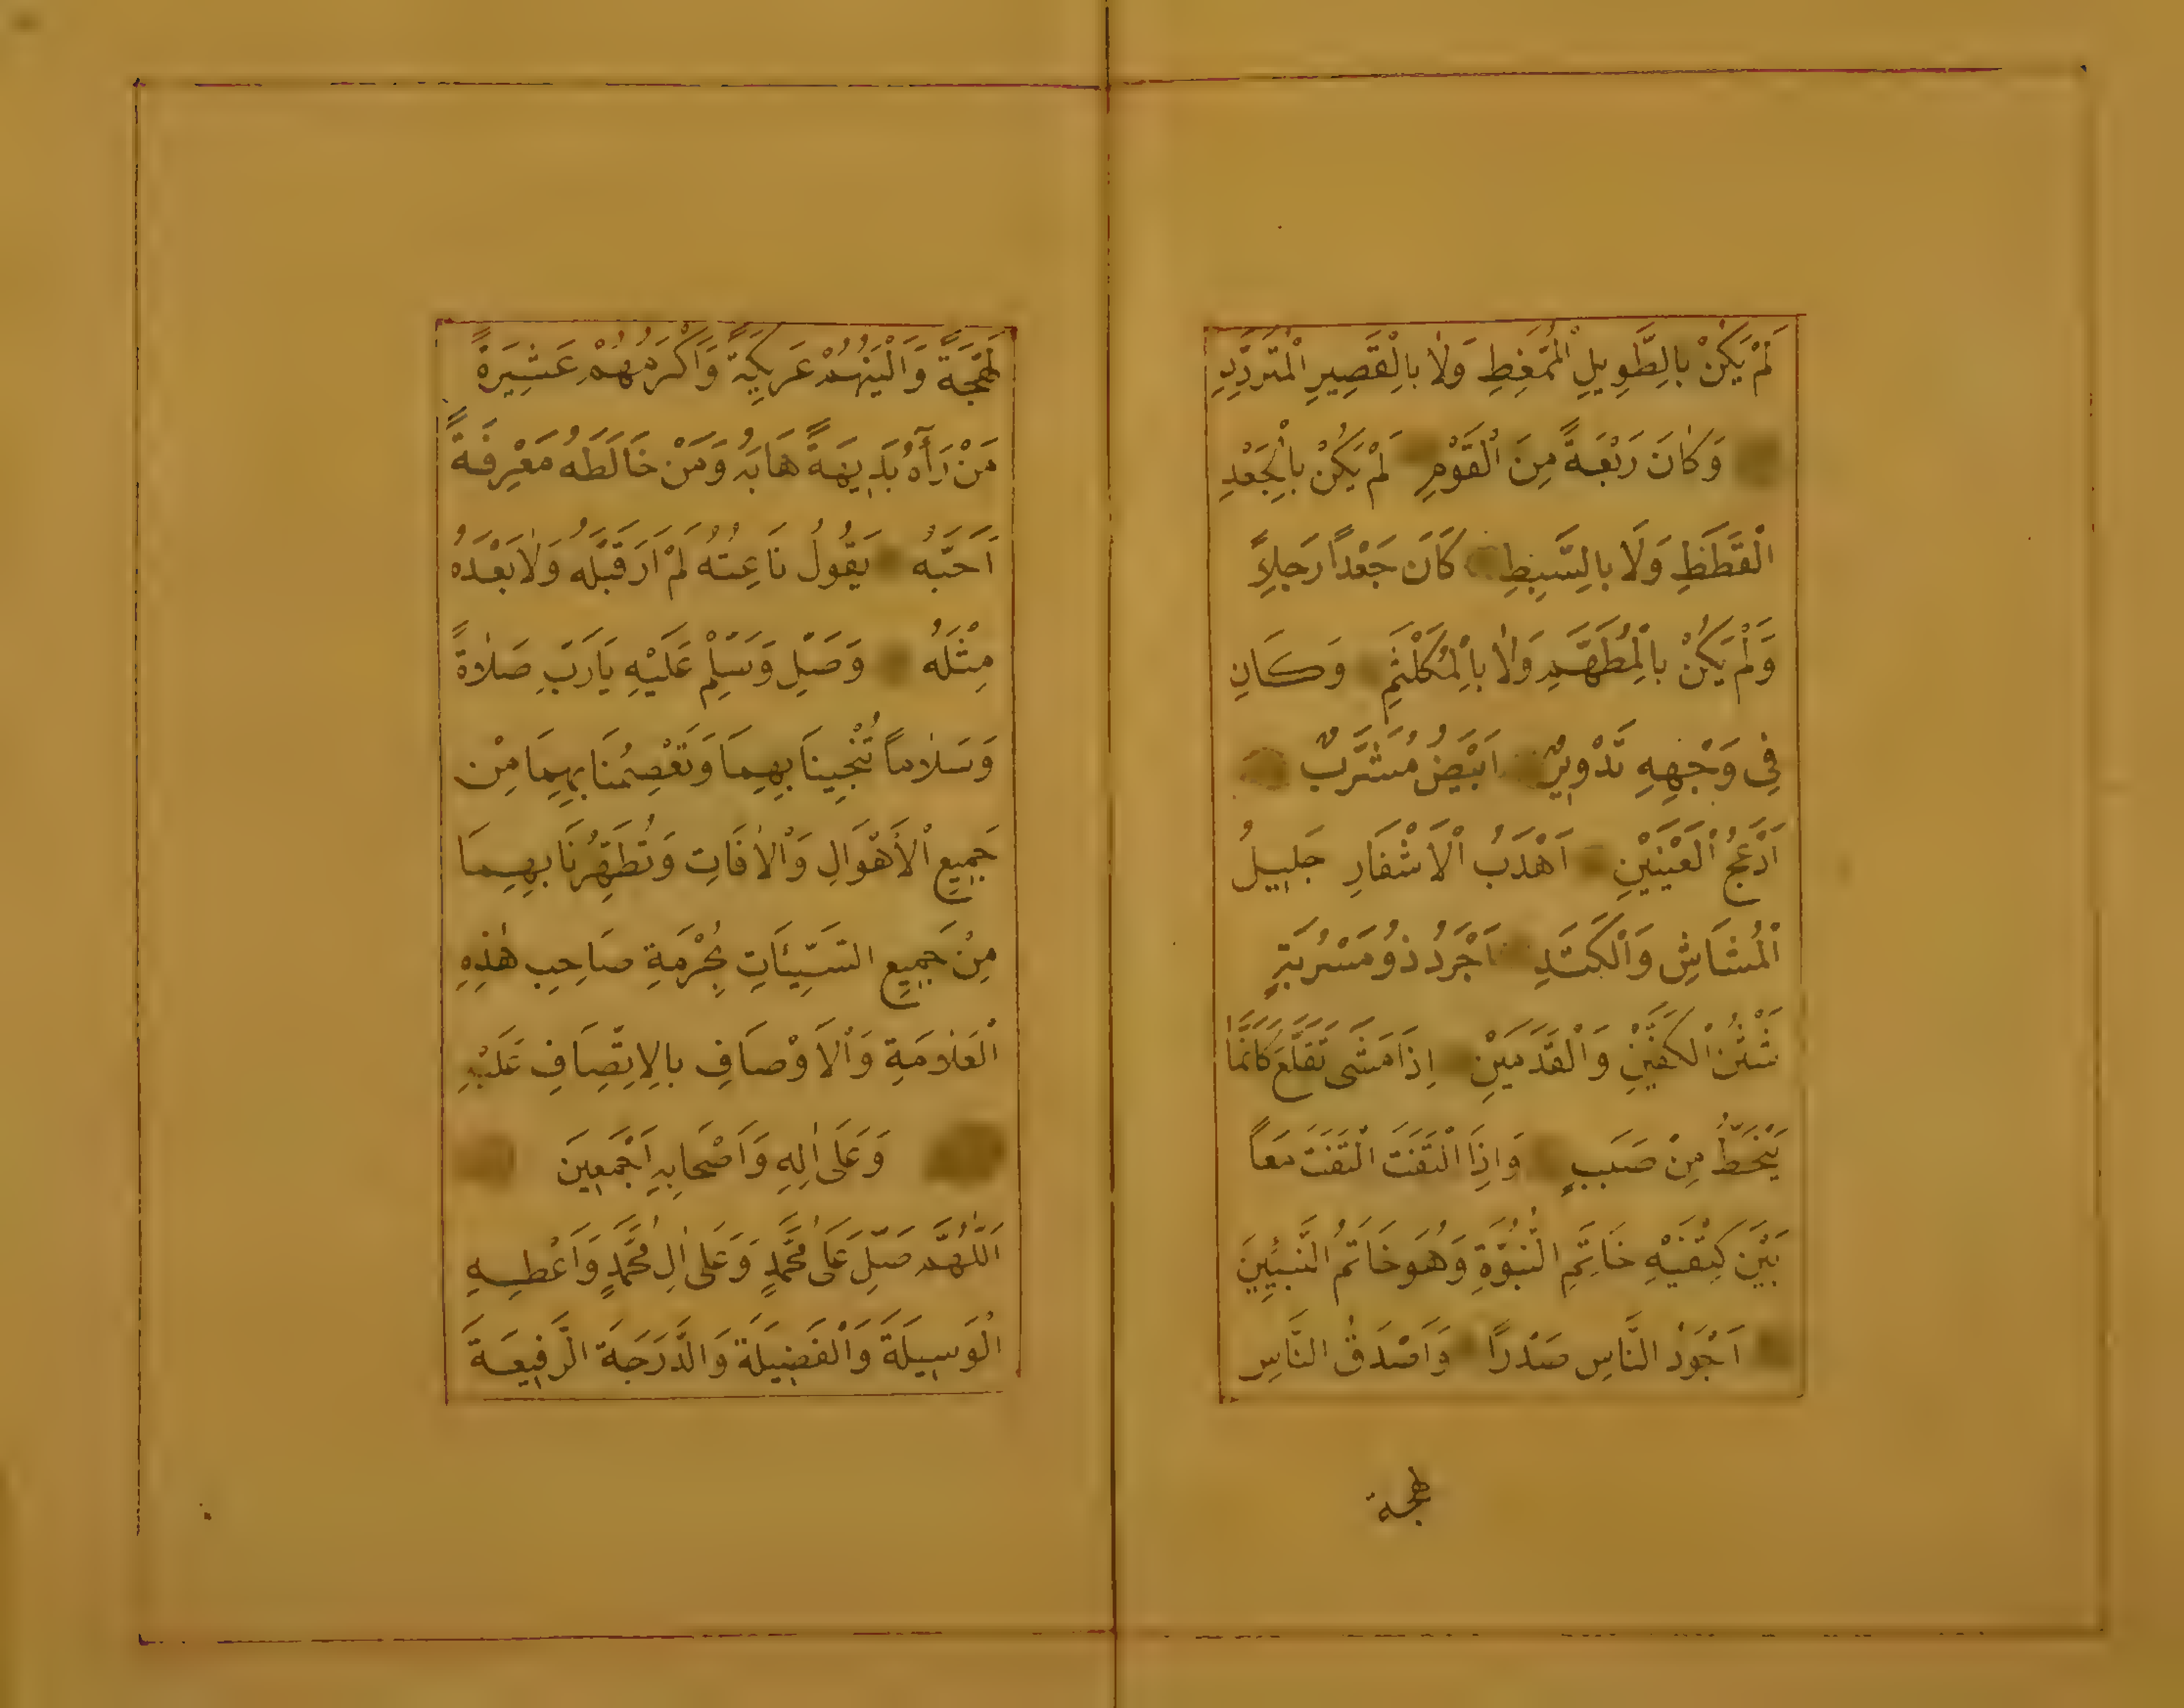 لَمْ يَكُنْ بِالطَّوِيلِ الْمُمَّغِطِ وَلَا بِالْقَصِيرِ الْمُتَرَدِّدِ
وَكَانَ رَبْعَةً مِنَ الْقَوْمِ لَمْ يَكُنْ بِالْجَعْدِ
الْقَطَطِ وَلَا بِالسَّبِطِ كَانَ جَعْدًا رَجِلًا
وَلَمْ يَكُنْ بِالْمُطَهَّمِ وَلَا بِالْمُكَلْثَمِ وَكَانَ
فِي وَجْهِهِ تَدْوِيرٌ اَبْيَضُ مُشْرَبٌ
اَدْعَجُ الْعَيْنَيْنِ اَهْدَبُ الْاَشْفَارِ جَلِيلُ
الْمُشَاشِ وَالْكَتَدِ اَجْرَدُ ذُو مَسْرُبَةٍ
شَثْنُ الْكَفَّيْنِ وَالْقَدَمَيْنِ اِذَا مَشَى تَقَلَّعَ كَاَنَّمَا
يَنْحَطُّ مِنْ صَبَبٍ وَاِذَا الْتَفَتَ الْتَفَتَ مَعًا
بَيْنَ كَتِفَيْهِ خَاتَمُ النُّبُوَّةِ وَهُوَ خَاتَمُ النَّبِيِّينَ
اَجْوَدُ النَّاسِ صَدْرًا وَاَصْدَقُ النَّاسِ
لهجة
لَهْجَةً وَاَلْيَنُهُمْ عَرِيكَةً وَاَكْرَمُهُمْ عَشِيرَةً
مَنْ رَآهُ بَدِيهَةً هَابَهُ وَمَنْ خَالَطَهُ مَعْرِفَةً
اَحَبَّهُ يَقُولُ نَاعِتُهُ لَمْ اَرَ قَبْلَهُ وَلَا بَعْدَهُ
مِثْلَهُ وَصَلِّ وَسَلِّمْ عَلَيْهِ يَا رَبِّ صَلَاةً
وَسَلَامًا تُنْجِينَا بِهِمَا وَتَعْصِمُنَا بِهِمَا مِنْ
جَمِيعِ الْاَهْوَالِ وَالْاٰفَاتِ وَتُطَهِّرُنَا بِهِمَا
مِنْ جَمِيعِ السَّيِّئَاتِ بِحُرْمَةِ صَاحِبِ هٰذِهِ
الْعَلَامَةِ وَالْاَوْصَافِ بِالْاِتِّصَافِ عَلَيْهِ
وَعَلَى اٰلِهِ وَاَصْحَابِهِ اَجْمَعِينَ
اَللّٰهُمَّ صَلِّ عَلَى مُحَمَّدٍ وَعَلَى اٰلِ مُحَمَّدٍ وَاَعْطِهِ
الْوَسِيلَةَ وَالْفَضِيلَةَ وَالدَّرَجَةَ الرَّفِيعَةَ